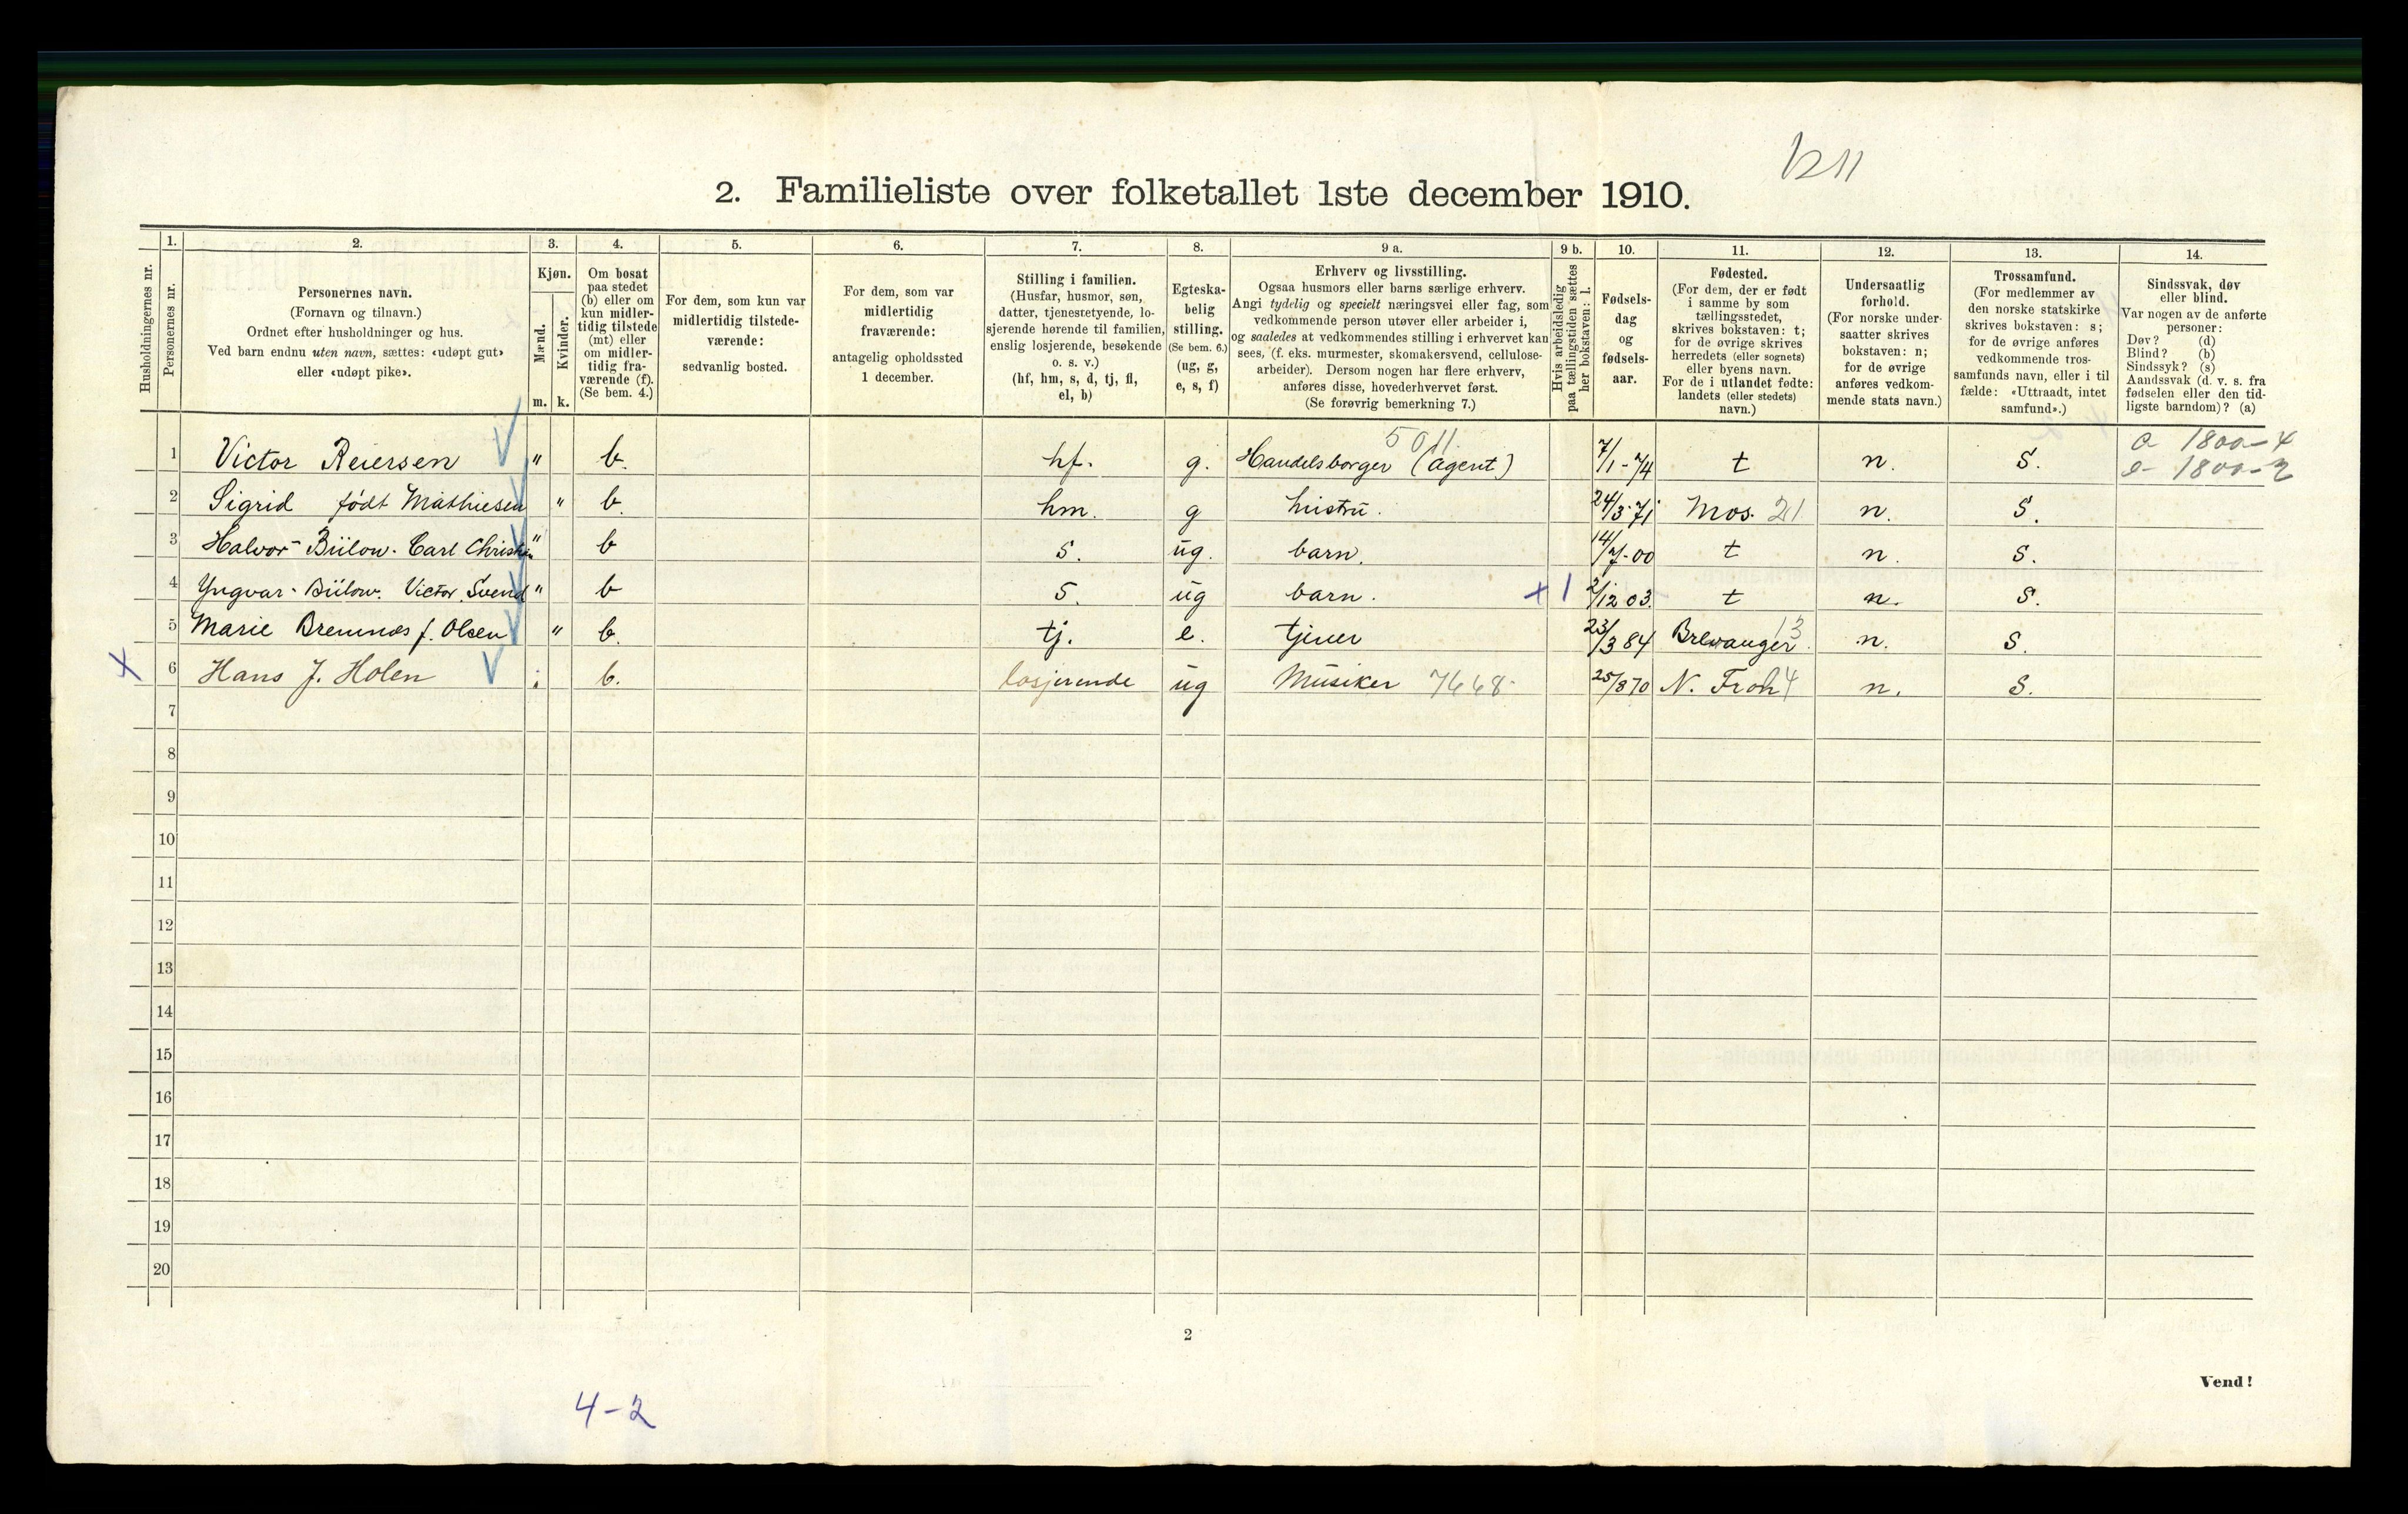 2. Familieliste over folketallet 1ste december 1910.
Husholdningernes nr.
1.
Personernes nr.
2.
Personernes navn.
(Fornavn og tilnavn.)
Ordnet efter husholdninger og hus.
Ved barn endnu uten navn, sættes: «udøpt gut»
eller «udøpt pike».
3.
Kjøn.
Mænd.
Kvinder.
m. k.
4.
Om bosat
paa stedet
(b) eller om
kun midler-
tidig tilstede
(mt) eller
om midler-
tidig fra-
værende (f).
(Se bem. 4.)
5.
For dem, som kun var
midlertidig tilstede-
værende:
sedvanlig bosted.
6.
For dem, som var
midlertidig
fraværende:
antagelig opholdssted
1 december.
7.
Stilling i familien.
(Husfar, husmor, søn,
datter, tjenestetyende, lo-
sjerende hørende til familien,
enslig losjerende, besøkende
o. s. v.)
(hf, hm, s, d, tj, fl,
el, b)
8.
Egteska-
belig
stilling.
(Se bem. 6.)
(ug, g,
e, s, f)
9 a.
Erhverv og livsstilling.
Ogsaa husmors eller barns særlige erhverv.
Angi tydelig og specielt næringsvei eller fag, som
vedkommende person utøver eller arbeider i,
og saaledes at vedkommendes stilling i erhvervet kan
sees, (f. eks. murmester, skomakersvend, cellulose-
arbeider). Dersom nogen har flere erhverv,
anføres disse, hovederhvervet først.
(Se forøvrig bemerkning 7.)
9 b.
Hvis arbeidsledig
paa tællingstiden sættes
her bokstaven: l.
10.
Fødsels-
dag
og
fødsels-
aar.
11.
Fødested.
(For dem, der er født
i samme by som
tællingsstedet,
skrives bokstaven: t;
for de øvrige skrives
herredets (eller sognets)
eller byens navn.
For de i utlandet fødte:
landets (eller stedets)
navn.)
12.
Undersaatlig
forhold.
(For norske under-
saatter skrives
bokstaven: n;
for de øvrige
anføres vedkom-
mende stats navn.)
13.
Trossamfund.
(For medlemmer av
den norske statskirke
skrives bokstaven: s;
for de øvrige anføres
vedkommende tros-
samfunds navn, eller i til
fælde: «Uttraadt, intet
samfund».)
14.
Sindssvak, døv
eller blind.
Var nogen av de anførte
personer:
Døv? (d)
Blind? (b)
Sindssyk? (s)
Aandssvak (d. v. s. fra
fødselen eller den tid-
ligste barndom)? (a)
5011. a 1800-4
1 Victor Reiersen " b. hf. g. Handelsborger (agent) 7/1-74 t n. S. e 1800-2
2 Sigrid født Mathiesen " b. hm. g hustru. 24/3-71 Mos. 21 n. S.
3 Halvor Bülow. Carl Christian " b s. ug. barn. 14/7-00 t n. S.
4 Yngvar Bülow. Victor Svend " b s. ug barn. + 1 2/12 03. t n. S.
5 Marie Bremnes f. Olsen " b. tj. e. tjener 23/3 84 Brevanger 13 n. S.
+ 6 Hans J. Holen b. losjerende ug Musiker 7668- 25/8 70 N. Froh 4 n. S.
7
8
9
10
11
12
13
14
15
16
17
18
19
20
2
Vend!
4-2